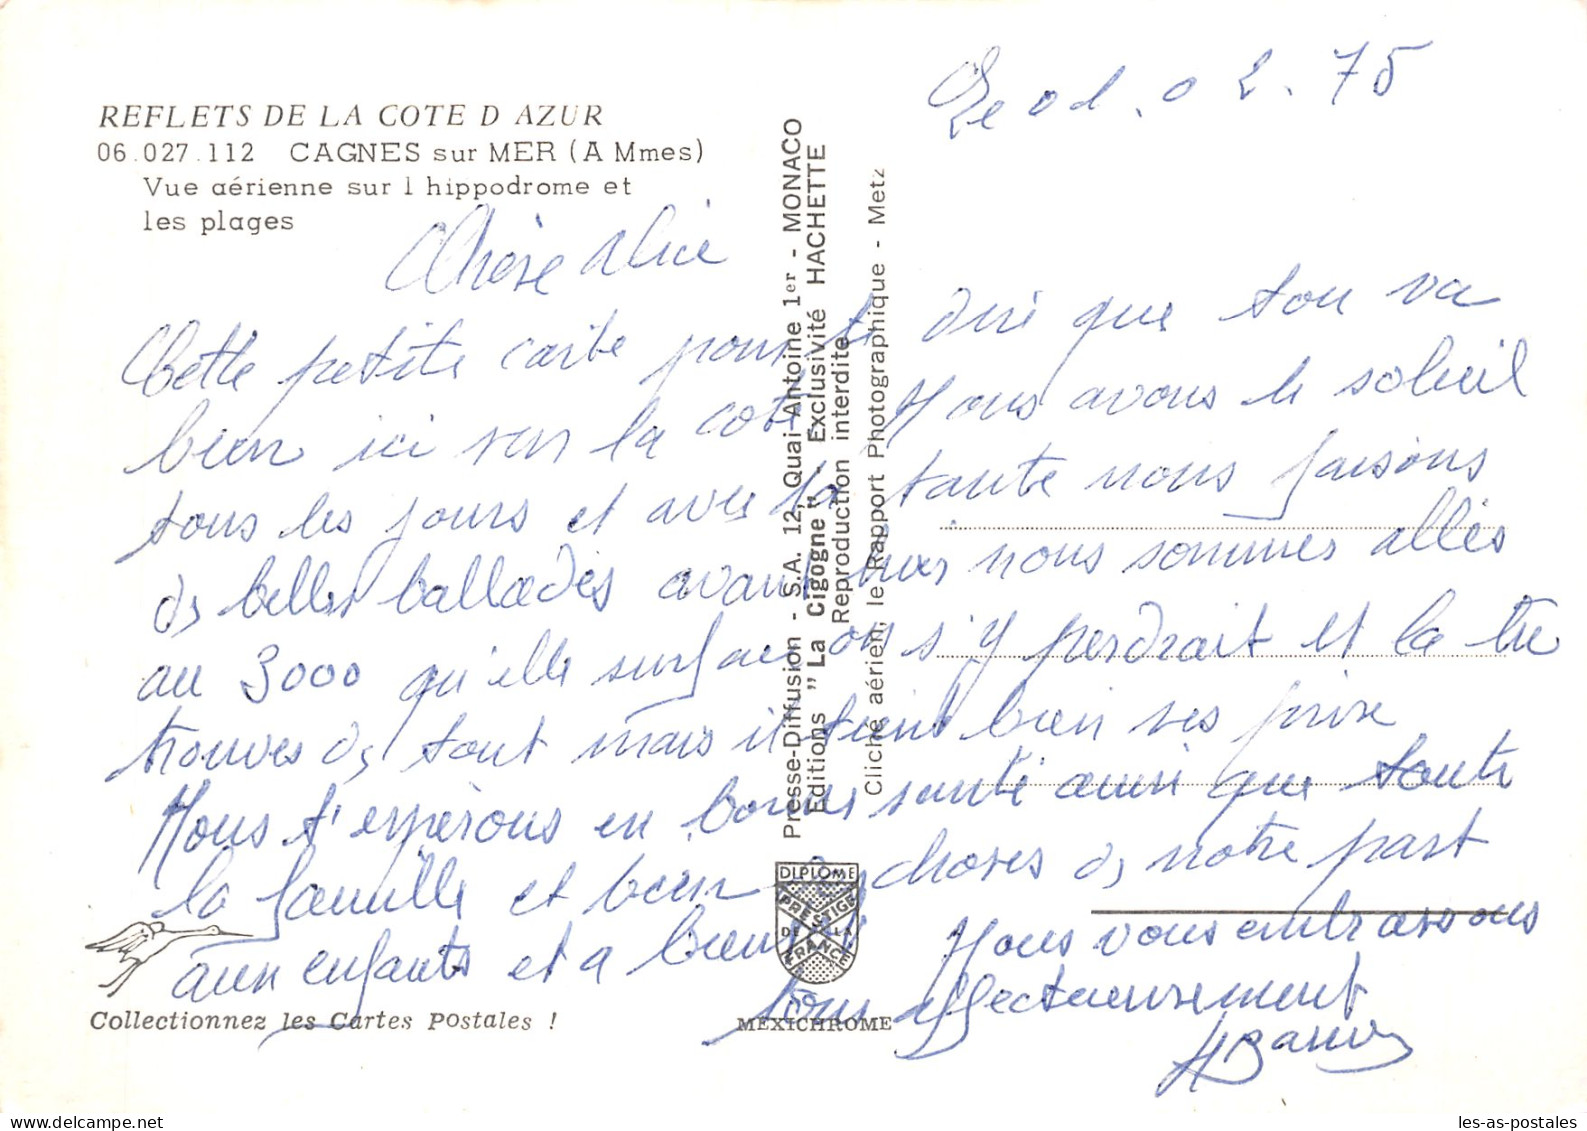 REFLETS DE LA COTE D AZUR
06.027.112 CAGNES sur MER (A Mmes)
Vue aérienne sur l hippodrome et
les plages
Le 02.75
Chère Alice
Cette petite carte pour te dire que tou va
bien ici sur la cote Nous avons le soleil
tous les jours et avec la tante nous faisons
de belles ballades avant hier nous sommes allés
au 3000 qu'elle surface on s'y perdrait et la tu
trouves de tout mais il tient bien ses prix
Nous t'espérons en bonne santé ainsi que toute
la famille et bien des choses de notre part
aux enfants et a bientot Nous vous embrassons
tous affectueusement
Presse-Diffusion - S.A. 12, Quai Antoine 1er - MONACO
Editions "La Cigogne" - Exclusivité HACHETTE
Reproduction interdite
Cliché aérien, le Rapport Photographique - Metz
DIPLOME
PRESTIGE
DE LA
FRANCE
MEXICHROME
Collectionnez les Cartes Postales !
les-as-postales